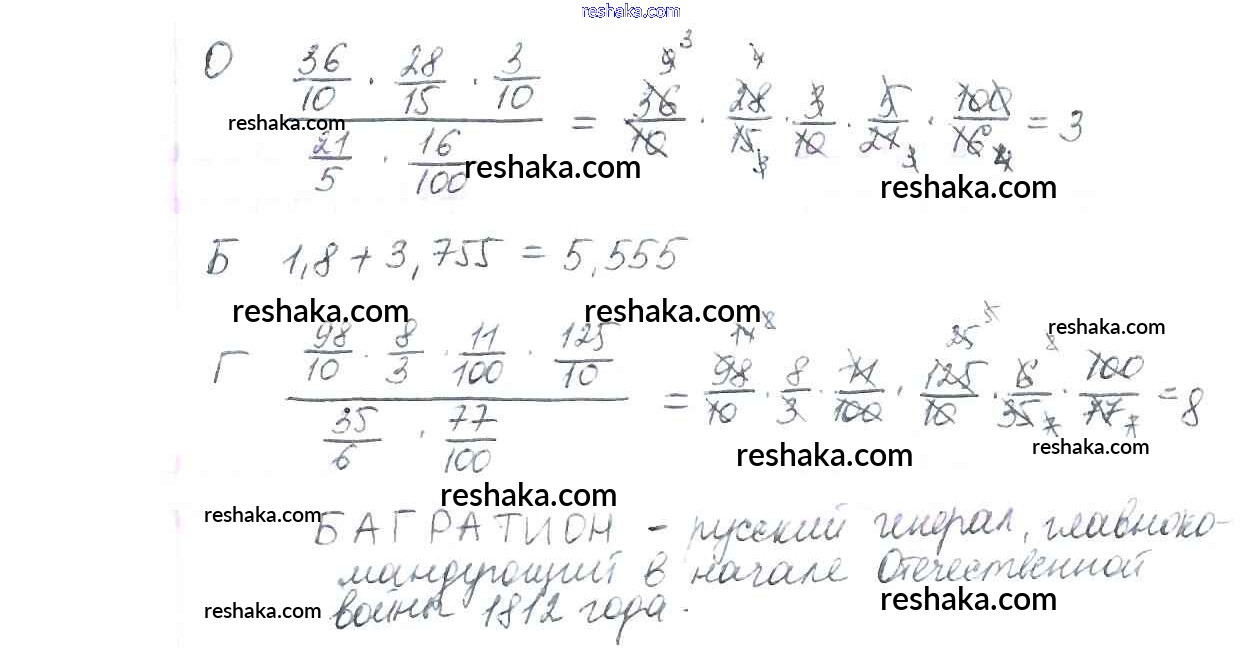 reshaka.com
О 36/10 · 28/15 · 3/10 / 21/5 · 16/100 = 36/10 · 28/15 · 3/10 · 5/21 · 100/16 = 3
reshaka.com reshaka.com reshaka.com
Б 1,8 + 3,755 = 5,555
reshaka.com reshaka.com reshaka.com
Г 98/10 · 8/3 · 11/100 · 125/10 / 35/6 · 77/100 = 98/10 · 8/3 · 11/100 · 125/10 · 6/35 · 100/77 = 8
reshaka.com reshaka.com
reshaka.com
reshaka.com
БАГРАТИОН – русский генерал, главноко-
мандующий в начале Отечественной
войны 1812 года.
reshaka.com reshaka.com